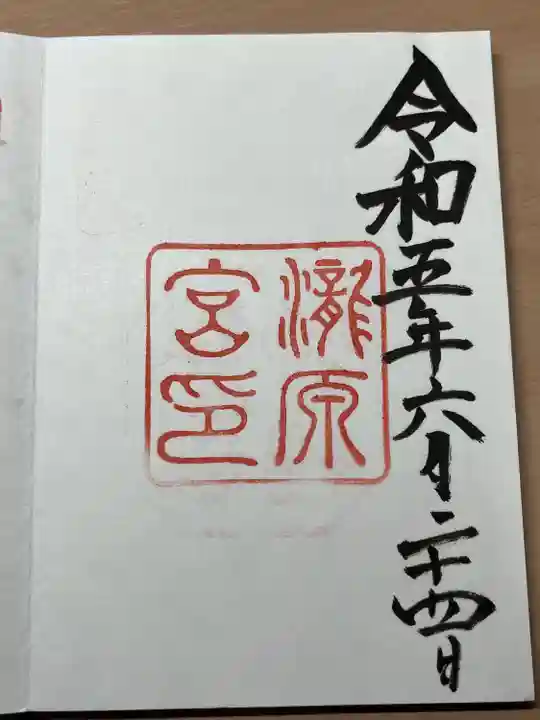 令和五年六月二十四日
瀧原
宮印